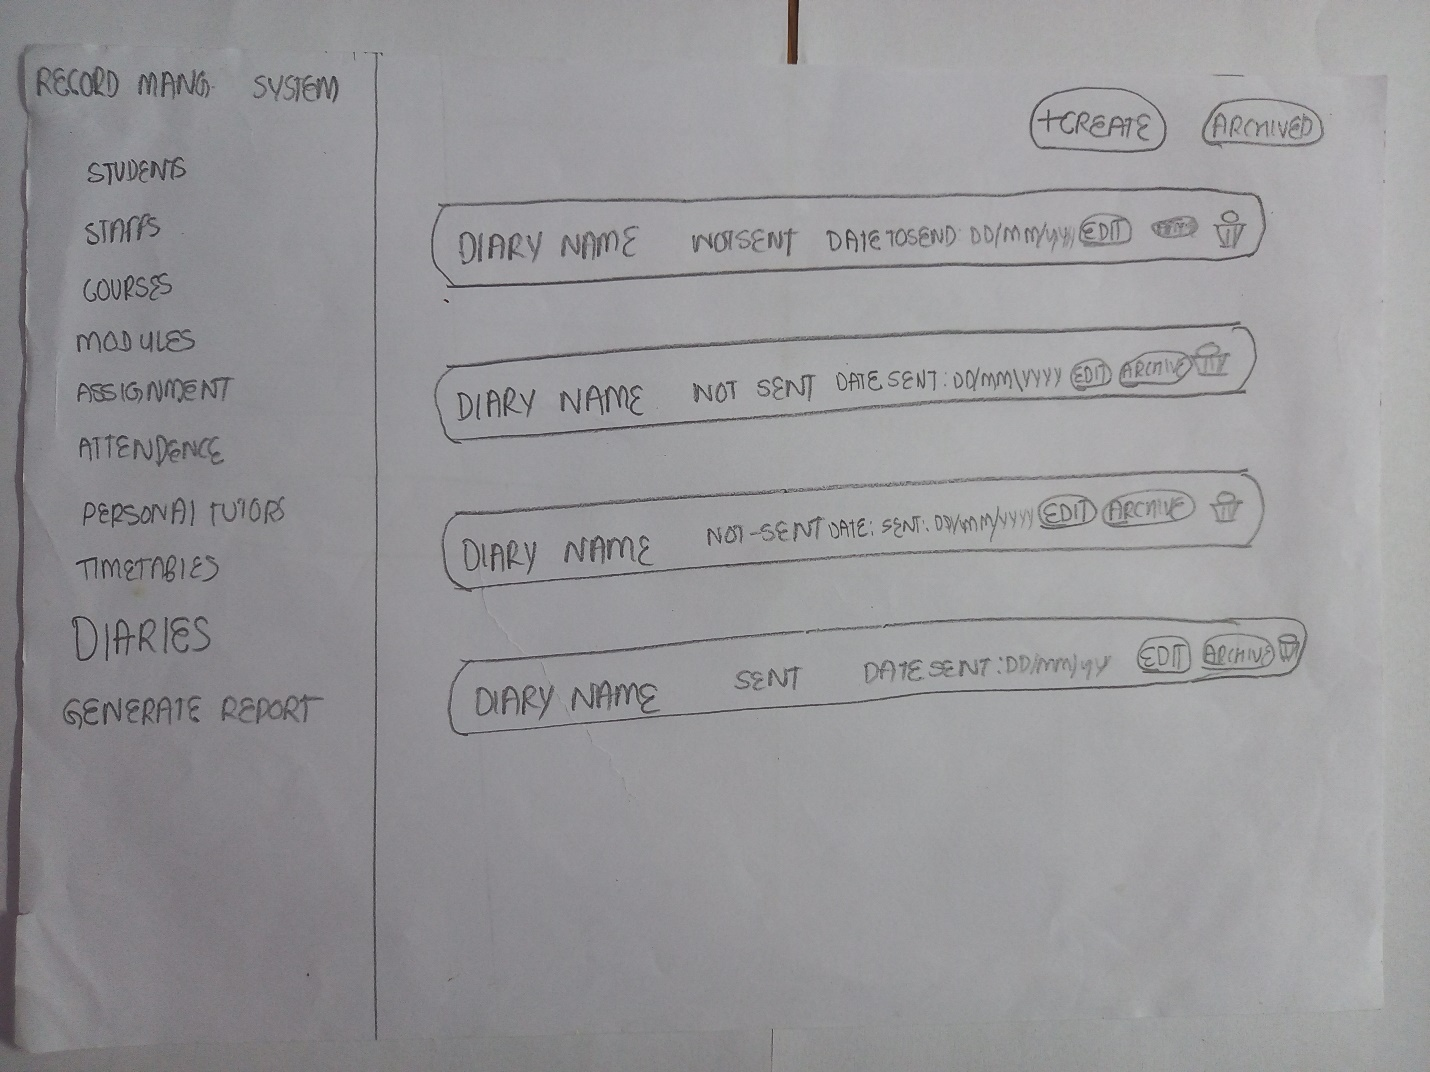 RECORD MANG. SYSTEM
STUDENTS
STAFFS
COURSES
MODULES
ASSIGNMENT
ATTENDENCE
PERSONAL TUTORS
TIMETABLES
DIARIES
GENERATE REPORT
+CREATE ARCHIVED
DIARY NAME NOT SENT DATE TO SEND: DD/MM/YY EDIT
DIARY NAME NOT SENT DATE SENT: DD/MM/YYYY EDIT ARCHIVE
DIARY NAME NOT-SENT DATE: SENT: DD/MM/YYYY EDIT ARCHIVE
DIARY NAME SENT DATE SENT: DD/MM/YY EDIT ARCHIVE